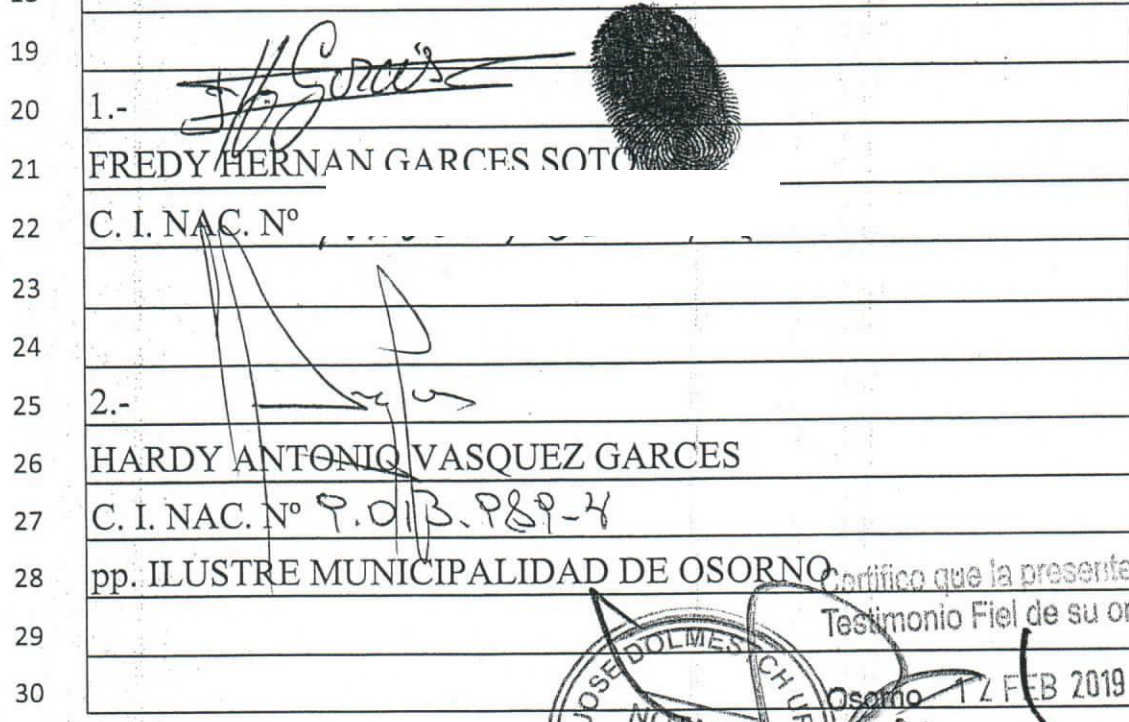 19
20 1.-
21 FREDY HERNAN GARCES SOTO
22 C. I. NAC. Nº
23
24
25 2.-
26 HARDY ANTONIO VASQUEZ GARCES
27 C. I. NAC. Nº
28 pp. ILUSTRE MUNICIPALIDAD DE OSORNO
Certifico que la presente
Testimonio Fiel de su or
29
JOSE DOLMESTCH UR
Osorno 12 FEB 2019
30